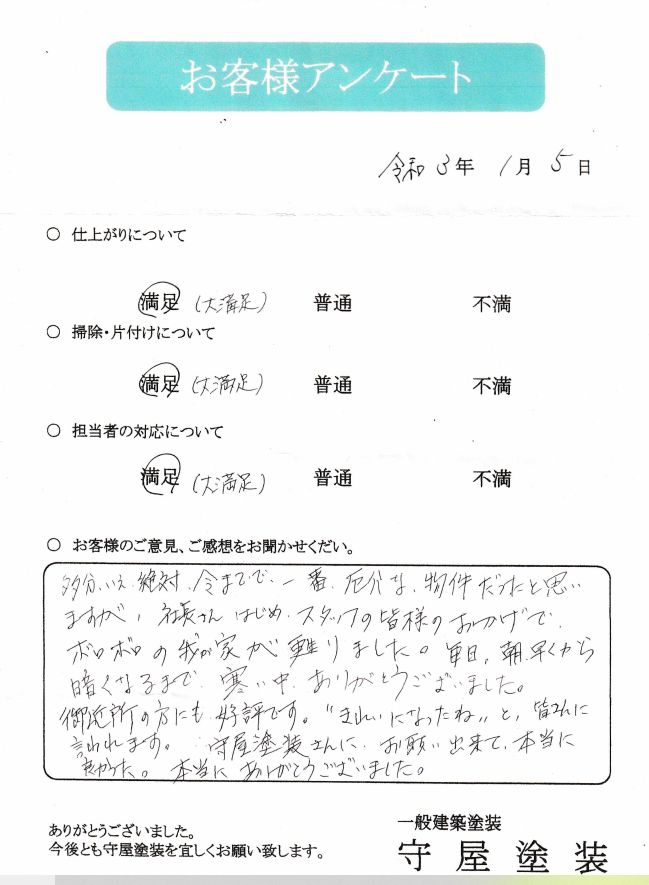 お客様アンケート
令和 3年 1月 5日
○ 仕上がりについて
満足 (大満足) 普通 不満
○ 掃除・片付けについて
満足 (大満足) 普通 不満
○ 担当者の対応について
満足 (大満足) 普通 不満
○ お客様のご意見、ご感想をお聞かせくだい。
多分、いえ、絶対、今までで、一番、厄介な、物件だったと思い
ますが、社長さん はじめ、スタッフの皆様のおかげで、
ボロボロの我が家が甦りました。毎日、朝早くから
暗くなるまで、寒い中、ありがとうございました。
御近所の方にも、好評です。"きれいになったね"と、皆さんに
言われます。 守屋塗装さんに、お願い出来て、本当に
良かった。 本当に ありがとうございました。
ありがとうございました。
今後とも守屋塗装を宜しくお願い致します。
一般建築塗装
守屋塗装